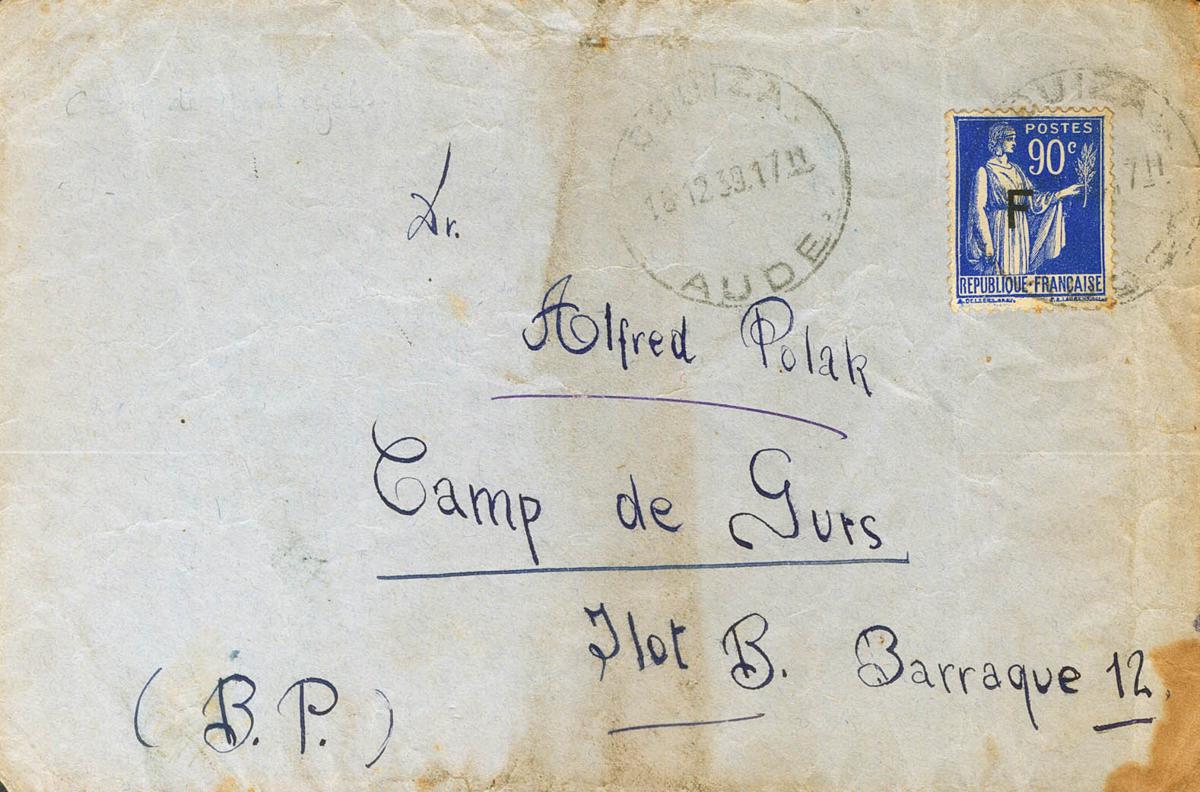 COUIZA
18.12.39.17H
AUDE
POSTES
90c
F
REPUBLIQUE·FRANÇAISE
Dr.
Alfred Polak
Camp de Gurs
Ilot B. Barraque 12.
(B.P.)